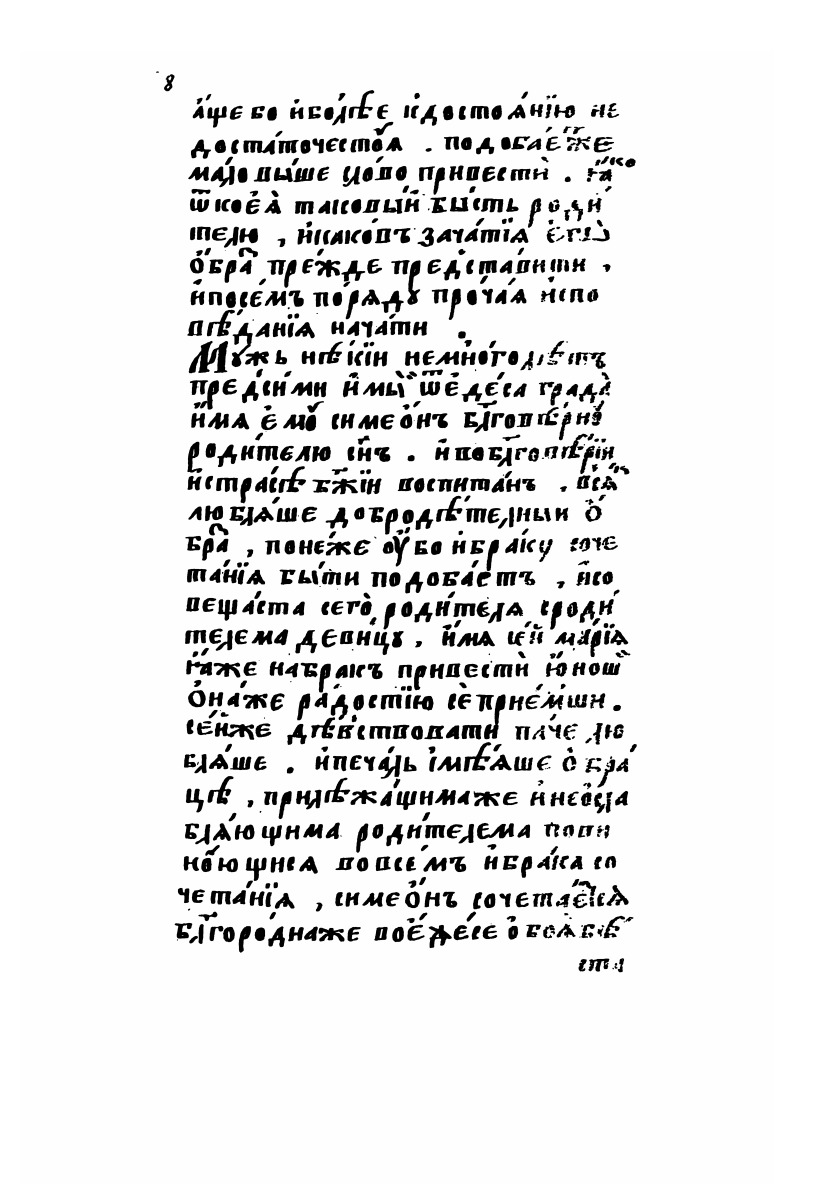 8
а҆́ще бо и҆бо́лѣе кдостоѧ́нїю не
доста́точествꙋѧ . подоба́етже
ма́ло вы́ше сло́во привестѝ . ꙗ҆́ко
ѿкоеѧ̀ таковы́й бы́сть роди́
телю , и҆каковъ зача́тїѧ є҆гѡ̀
о҆́бра пре́жде предста́вити ,
и҆посе́мъ порѧ́ду про́чаѧ и҆спо
вѣ́данїѧ нача́ти .
Мꙋ́жь нѣ́кїй немно́голѣтъ
пред̾си́ми и҆мы ѿе҆де́са гра́да
и҆́мѧ є҆мꙋ̀ симео́нъ бл҃говѣ́рнꙋ
роди́телю сн҃ъ . и҆вобл҃говѣ́рїи
и҆стра́сѣ бж҃їи воспита́нъ . всѧ́
люблѧ́ше добродѣ́телный о҆́
бра , поне́же оу҆́бо и҆бра́ку соче
та́нїѧ бы́ти подоба́етъ , и҆со
веща́ста сего̀ роди́телѧ сроди́
телема деви́цꙋ , и҆́мѧ се́й марі́ѧ
ꙗ҆́же набра́къ привестѝ ю҆́ношꙋ
о҆на́же ра́достїю сѐ прие́мши .
се́йже дѣ́вствовати па́че лю
блѧ́ше . и҆печа́ль і҆мѣ́ѧше о҆бра́
цѣ , прилѣжа́щимаже и҆неѡсла
блѧ́ющима роди́телема пови
нꙋ́ющисѧ вовсе́мъ и҆бра́ка со
чета́нїѧ , симео́нъ сочета́етсѧ
бл҃горо́днаже вое҆де́се о҆боѧ бѣ́
ста